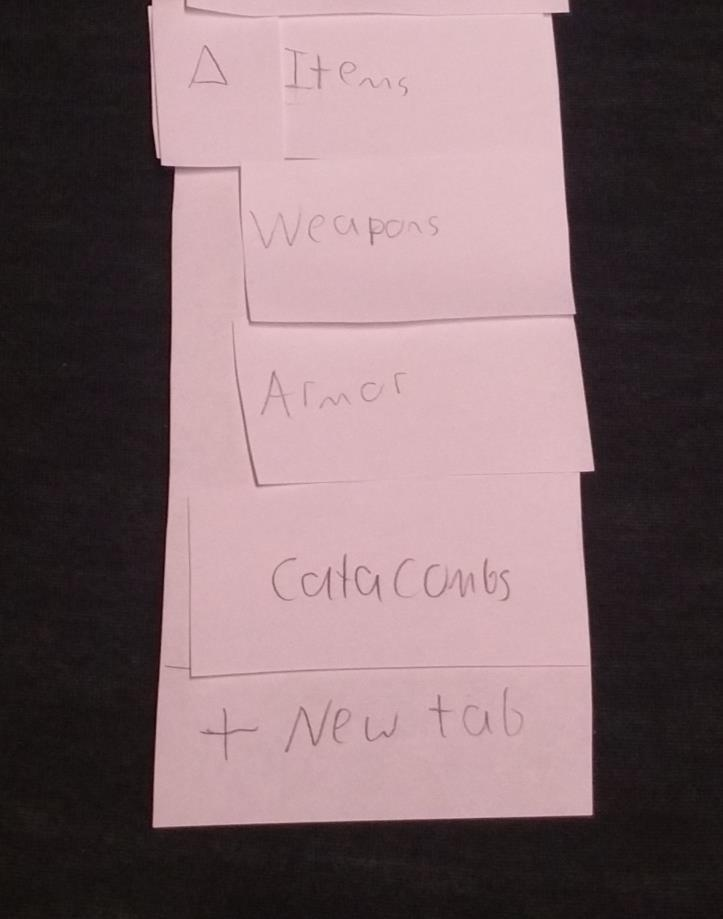 Δ Items
Weapons
Armor
Catacombs
+ New tab